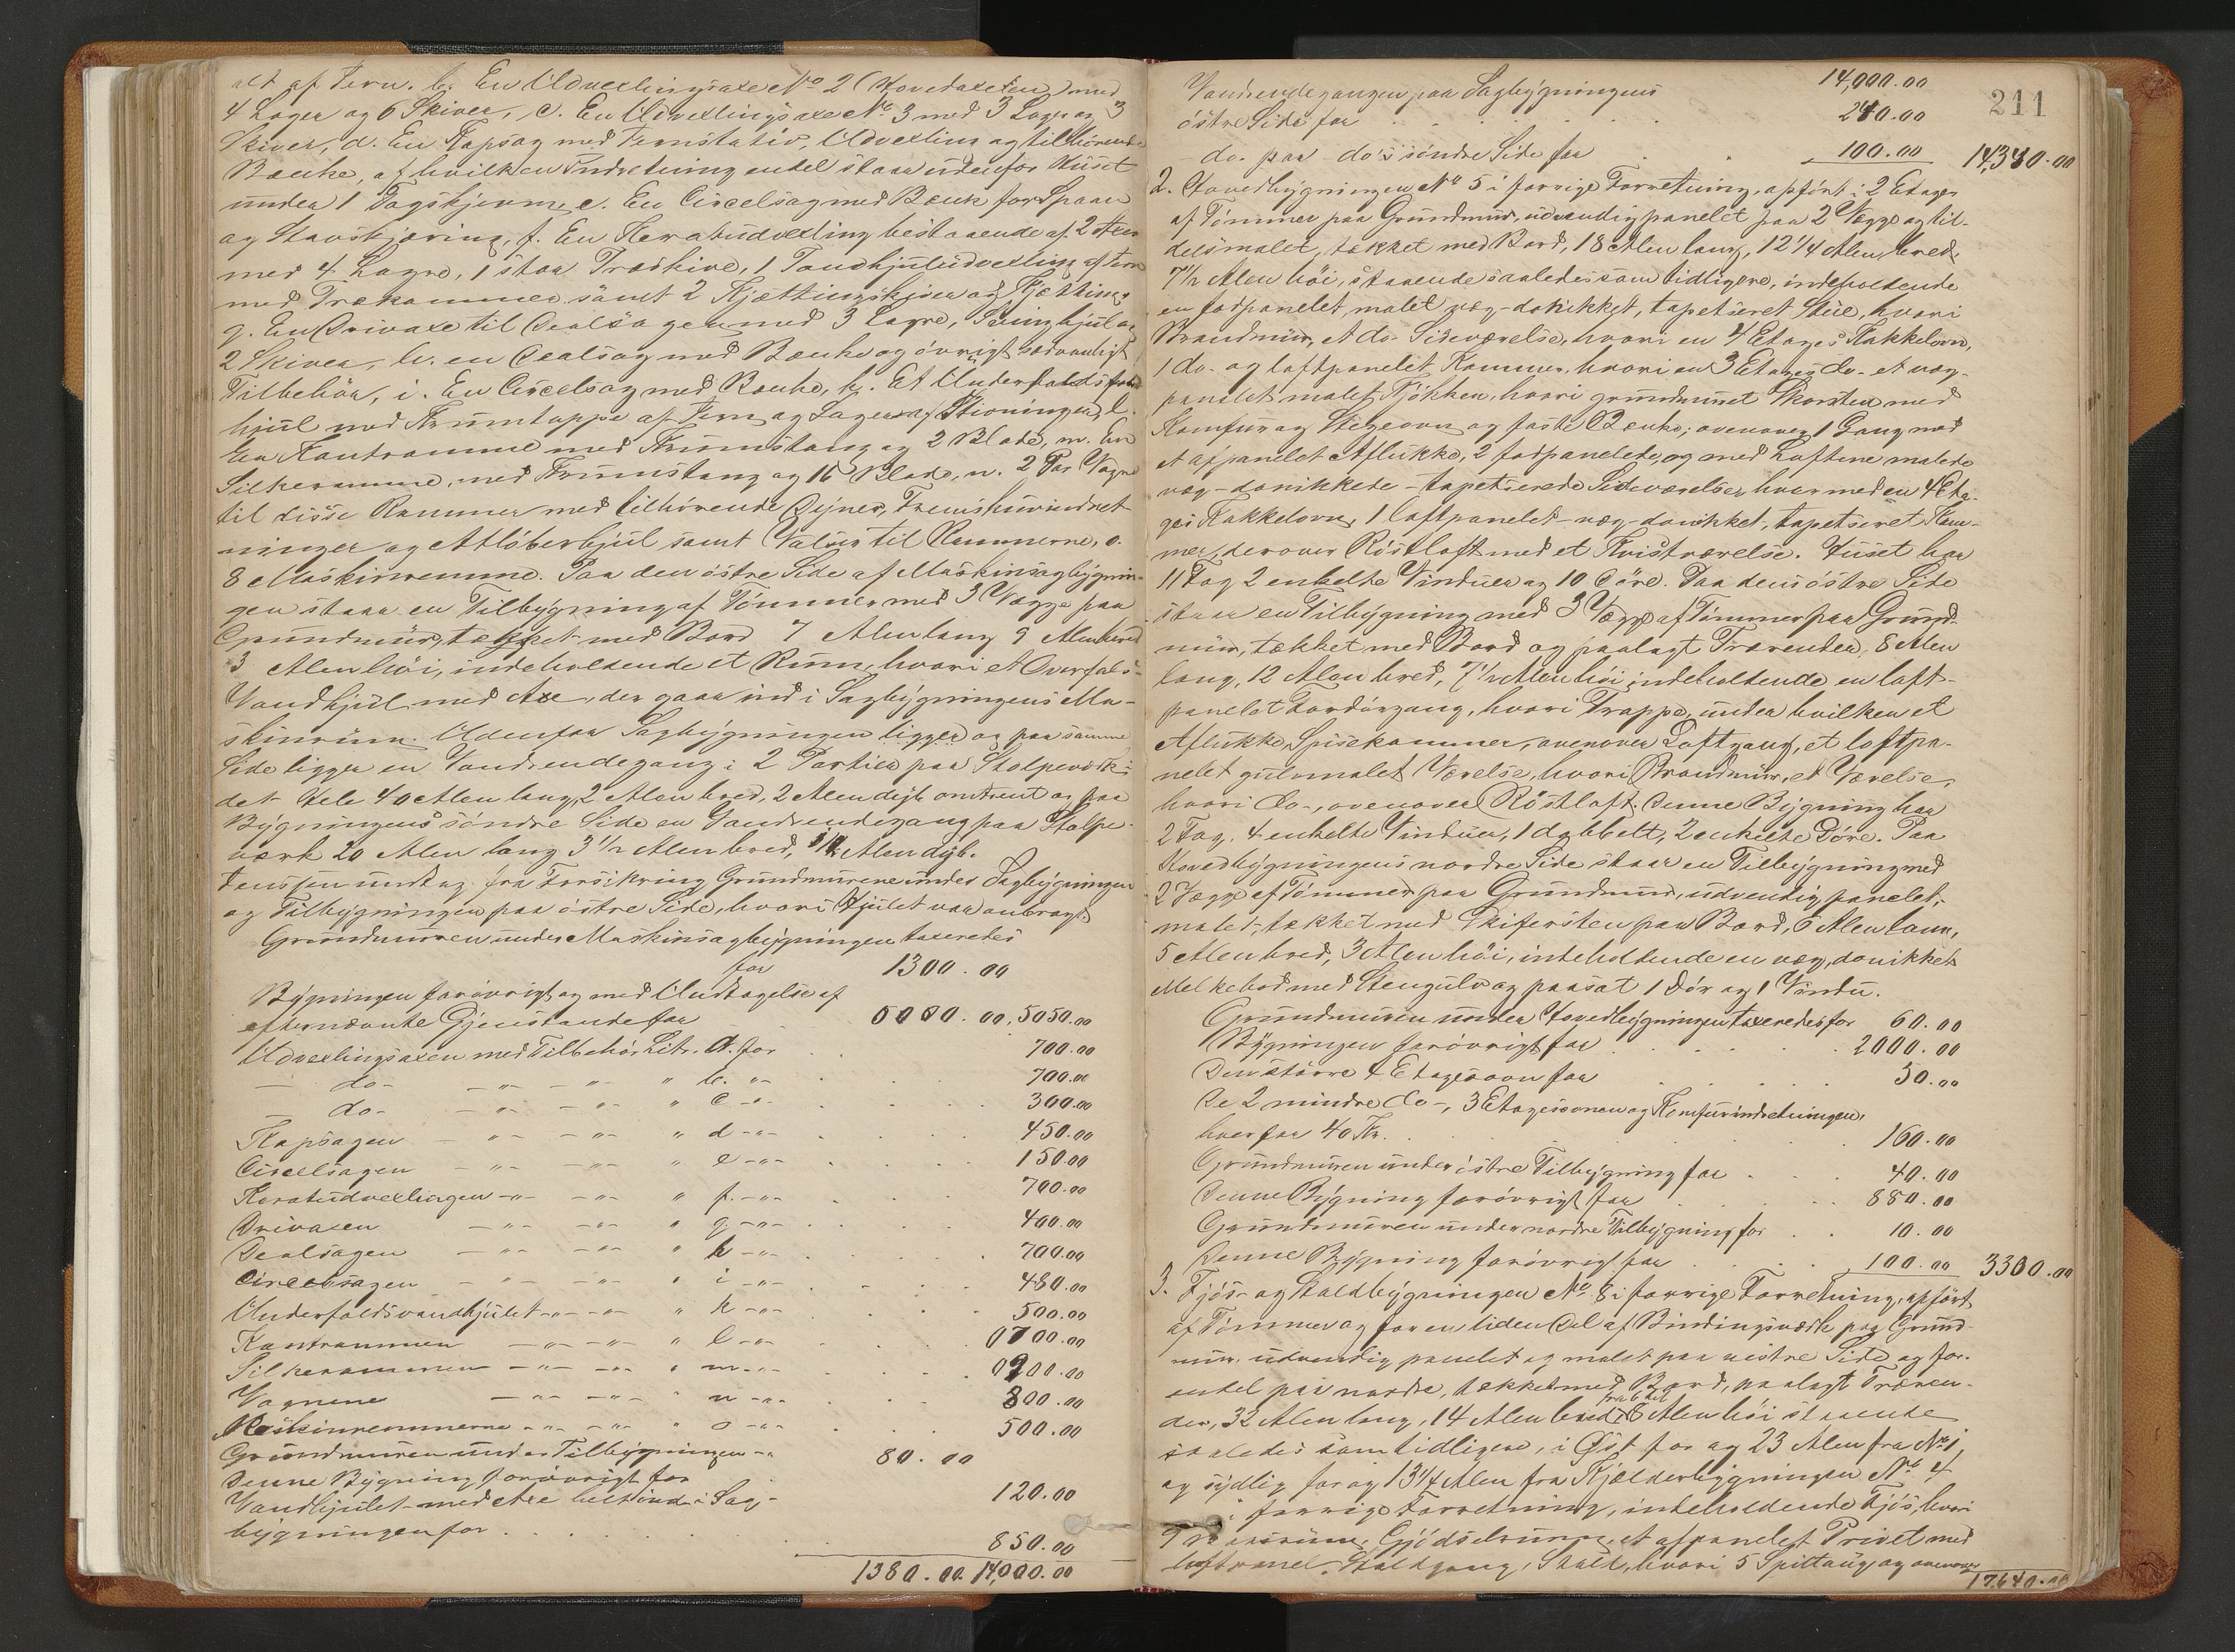 alt af Jern. b. En Udvexlingsaxe No 2 (Hovedaxelen) med
4 Lager og 6 Skiver, c. En Udvexlingsaxe No 3 med 3 Lager og 3
Skiver, d. En Kapsag med Jernstativ, Udvexling og tilhørende
Bænke, af hvilken Indretning endel staar udenfor Huset
under 1 Tagskjerm, e. En Circelsag med Bænk for Spaan
og Stavskjæring, f. En Keratudvexling bestaaende af 2 Axer
med 4 Lagre, 1 stor Træskive, 1 Tandhjuludvexling af Jern
med Trækammer samt 2 Kjættingskiver og Kjætting,
g. En Drivaxe til Dealsagen med 3 Lagre, Svinghjul og
2 Skiver, h. en Dealsag med Bænke og øvrigt sædvanligt
Tilbehør, i. En Circelsag med Bænke, k. Et Underfaldsvand
hjul med Krumtappe af Jern og Lager af Støvninger, l.
En Kantramme med Krumstang og 2 Blade, m. En
Silkeramme, med Krumstang og 16 Blade, n. 2 Par Vogne
til disse Rammer med tilhørende Dejner, Fremskuvindret-
ninger og Afløberhjul samt Valser til Rammerne, o.
8 Maskinremme. Paa den østre Side af Maskinsagbygnin-
gen staar en Tilbygning af Tømmer med 3 Vægge paa
Grundmur, tækket med Bord 7 Alen lang 9 Alen bred
3 Alen høi, indeholdende et Rum, hvori et Overfals-
Vandhjul med Axe, der gaar ind i Sagbygningens Ma-
skinrum. Udenfor Sagbygningen ligger og paa samme
Side ligger en Vandrendegang i 2 Partier paa Stolpeværk
det Hele 40 Alen lang, 2 Alen bred, 2 Alen dyb omtrent og paa
Bygningens søndre Side en Vandrendegang paa Stolpe-
værk 20 Alen lang 3 1/2 Alen bred, 1/2 Alen dyb.
undtag fra Forsikring Grundmurene under Sagbygningen
og Tilbygningen paa østre Side, hvori Hjulet var anbragt.
Grundmuren under Maskinsagbygningen taxeredes
for 1300.00
Bygningen forøvrigt og med Undtagelse af
efternævnte Gjenstande for 5050.00
Udvexlingsaxen med Tilbehør Litr. a. for 700.00
— do — " — " — " b. " 700.00
— do — " — " — " c " 300.00
Kapsagen — " — " — " d — " 450.00
Circelsagen — " — " — " e — " 150.00
Keratudvexlingen — " — " — " f. — " 700.00
Drivaxen — " — " — " g — " 400.00
Dealsagen — " — " — " h — " 700.00
Circelsagen — " — " — " i — " 480.00
Underfaldsvandhjulet — " — " — " k — " 500.00
Kantrammen — " — " — " l — " 700.00
Silkerammen — " — " — " m — " 900.00
Vognene — " — " — " n — " 800.00
Maskinremmerne — " — " — " o — " 500.00
Grundmuren under Tilbygningen — " 80.00
Denne Bygning forøvrigt for 120.00
Vandhjulet med Axe helt ind i Sag-
bygningen for 850.00
1380.00 14,000.00
211
14,000.00
Vandrendegangen paa Sagbygningens
østre Side for 240.00
do. paa do's søndre Side for 100.00 14,340.00
2. Hovedbygningen No 5 i forrige Forretning, opført i 2 Etager
af Tømmer paa Grundmur, udvendig panelet paa 2 Vægge og til-
dels malet, tækket med Bord, 18 Alen lang, 12 1/4 Alen bred,
7 1/2 Alen høi, staaende saaledes som tidligere, indeholdende
en fodpanelet, malet væg-donikket, tapetseret Stue, hvori
Brandmur, et do. Sideværelse, hvori en 4 Etages Kakkelovn,
1 do. og loftpanelet Kammer, hvori en 3 Etages do. et væg-
panelet malet Kjøkken, hvori grundmuret Skorsten med
Komfur og Stegeovn og faste Bænke; ovenover 1 Gang med
et afpanelet Aflukke, 2 fodpanelede, og med Loftene malede
væg-donikkede-tapetserede Sideværelser, hver med en 4 Eta-
ges Kakkelovn, 1 loftpanelet-væg-donikket, tapetseret Kam-
mer, derover Røstloft med et Kvistværelse. Huset har
11 Fag 2 enkelte Vinduer og 10 Døre. Paa dens østre Side
staar en Tilbygning med 3 Vægge af Tømmer paa Grund-
mur, tækket med Bord og paalagt Trærender, 8 Alen
lang, 12 Alen bred, 7 1/2 Alen høi indeholdende en loft-
panelet Fordørgang, hvori Trappe, under hvilken et
Aflukke, Spisekammer, ovenover Loftgang, et loftpa-
nelet gulvmalet Værelse, hvori Brandmur, et Værelse,
hvori do-, ovenover Røstloft. Denne Bygning har
2 Fag. 4 enkelte Vinduer, 1 dobbelt, 2 enkelte Døre. Paa
Hovedbygningens nordre Side staar en Tilbygning med
2 Vægge af Tømmer paa Grundmur, udvendig panelet,
malet, tækket med Skifersten paa Bord, 6 Alen lang,
5 Alen bred, 3 Alen høi, indeholdende en væg, donikket
Melkebod med Stengulv og paasat 1 Dør og 1 Vindu.
Grundmuren under Hovedbygningen taxeredes for 60.00
Bygningen forøvrigt for 2000.00
Den større 4 Etagesovn for 50.00
De 2 mindre do-, 3 Etagesovnen og Komfurindretningen,
hver for 40 Kr. 160.00
Grundmuren under østre Tilbygning for 40.00
Denne Bygning forøvrigt for 880.00
Grundmuren under nordre Tilbygning for 10.00
Denne Bygning forøvrigt for 100.00 3300.00
3. Fjøs- og Staldbygningen No 8 i forrige Forretning, opført
af Tømmer og for en liden Del af Bindingsværk paa Grund-
mur, udvendig panelet og malet paa vestre Side og for-
endel paa nordre, tækket med Bord, paalagt Træren-
der, 32 Alen lang, 14 Alen bred, fra 6 til 8 Alen høi staaende
saaledes som tidligere, i Øst for og 23 Alen fra No 1,
og sydlig for og 13 1/4 Alen fra Kjælderbygningen No 4
i forrige Forretning, indeholdende Fjøs, hvori
Gjødselrum, et afpanelet Privet med
loftpanel, Staldgang, Stald, hvori 5 Spiltaug, og ovenover
17,640.00